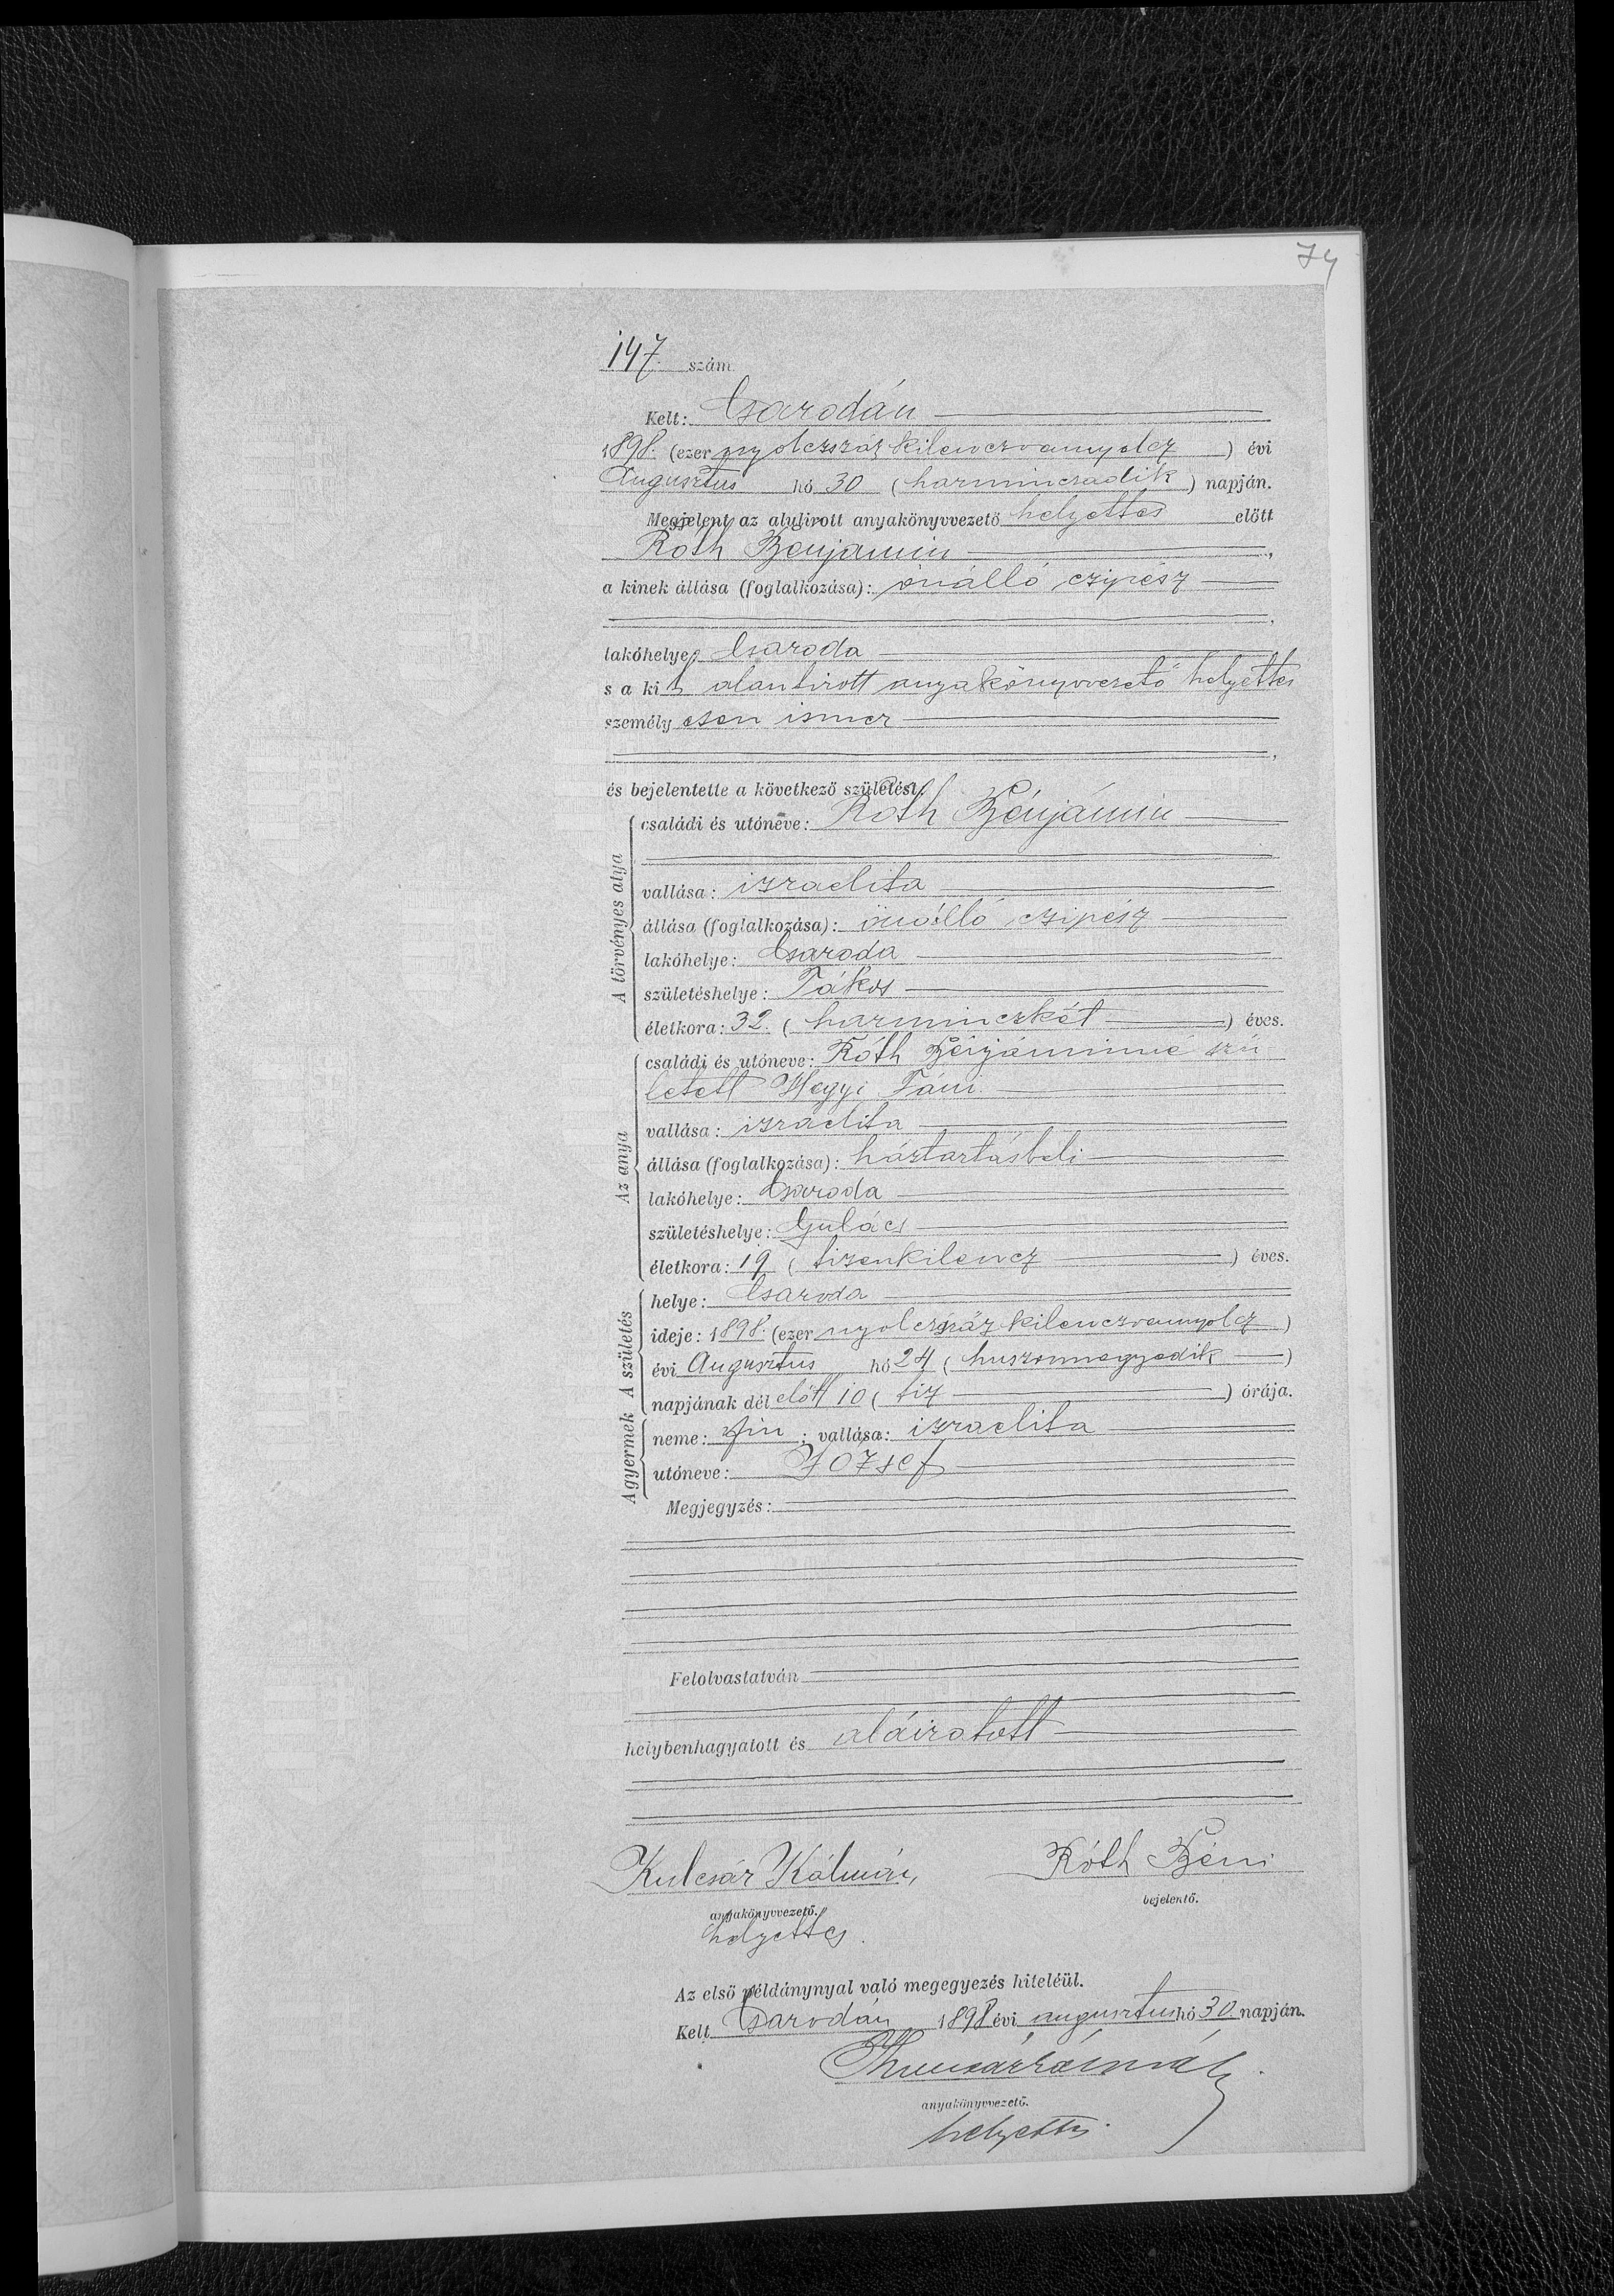 74
147. szám
Kelt: Csarodán
1898. (ezer nyolczszáz kilenczvannyolcz) évi
Augusztus hó 30 (harminczadik) napján.
Megjelent az alulirott anyakönyvvezető helyettes előtt
Róth Benjamin,
a kinek állása (foglalkozása): önálló czipész
lakóhelye: Csaroda
s a kit alantirott anyakönyvvezető helyettes
személyesen ismer,
és bejelentette a következő születést:
A törvényes atya
családi és utóneve: Róth Bénjámin
vallása: izraelita
állása (foglalkozása): önálló czipész
lakóhelye: Csaroda
születéshelye: Tákos
életkora: 32. (harminczkét) éves.
Az anya
családi és utóneve: Róth Bénjáminné szü
letett Hegyi Fáni
vallása: izraelita
állása (foglalkozása): háztartásbeli
lakóhelye: Csaroda
születéshelye: Gulács
életkora: 19 (tizenkilencz) éves.
A születés
helye: Csaroda
ideje: 1898. (ezer nyolczszáz kilenczvannyolcz)
évi Augusztus hó 24 (huszonnegyedik)
napjának dél előtt 10 (tiz) órája.
A gyermek
neme: fiu; vallása: izraelita
utóneve: József
Megjegyzés:
Felolvastatván
helybenhagyatott és aláiratott
Kulcsár Kálmán, Róth Béni
anyakönyvvezető. bejelentő.
helyettes.
Az első példánynyal való megegyezés hiteléül.
Kelt Csarodán 1898 évi augusztus hó 30. napján.
anyakönyvvezető.
helyettes